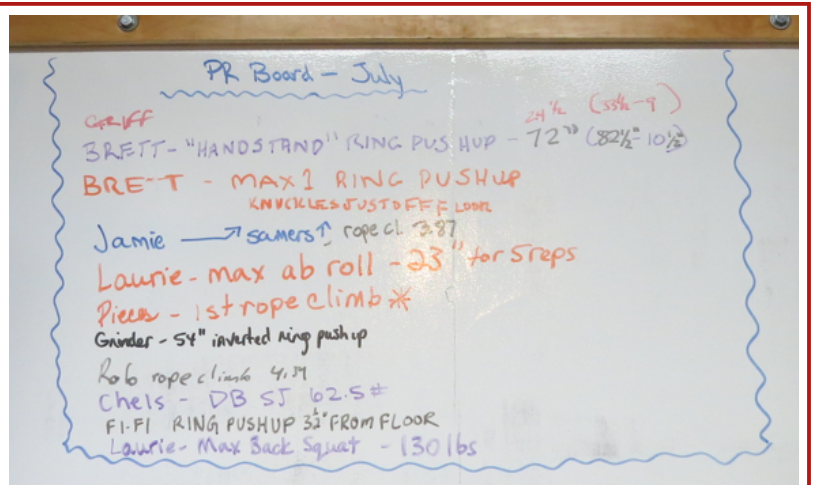 PR Board - July
GRIFF 24 1/2 (33 1/2 - 9)
BRETT - "HANDSTAND" RING PUSHUP - 72" (82 1/2" - 10 1/2)
BRETT - MAX 1 RING PUSHUP
KNUCKLES JUST OFF FLOOR
Jamie → samers↑ rope cl. 3.87
Laurie - max ab roll - 23" for 5 reps
Pieces - 1st rope climb *
Grinder - 54" inverted ring pushup
Rob rope climb
Chels - DB SJ 62.5#
FI-FI RING PUSHUP 3 1/2" FROM FLOOR
Laurie - Max Back Squat - 130 lbs